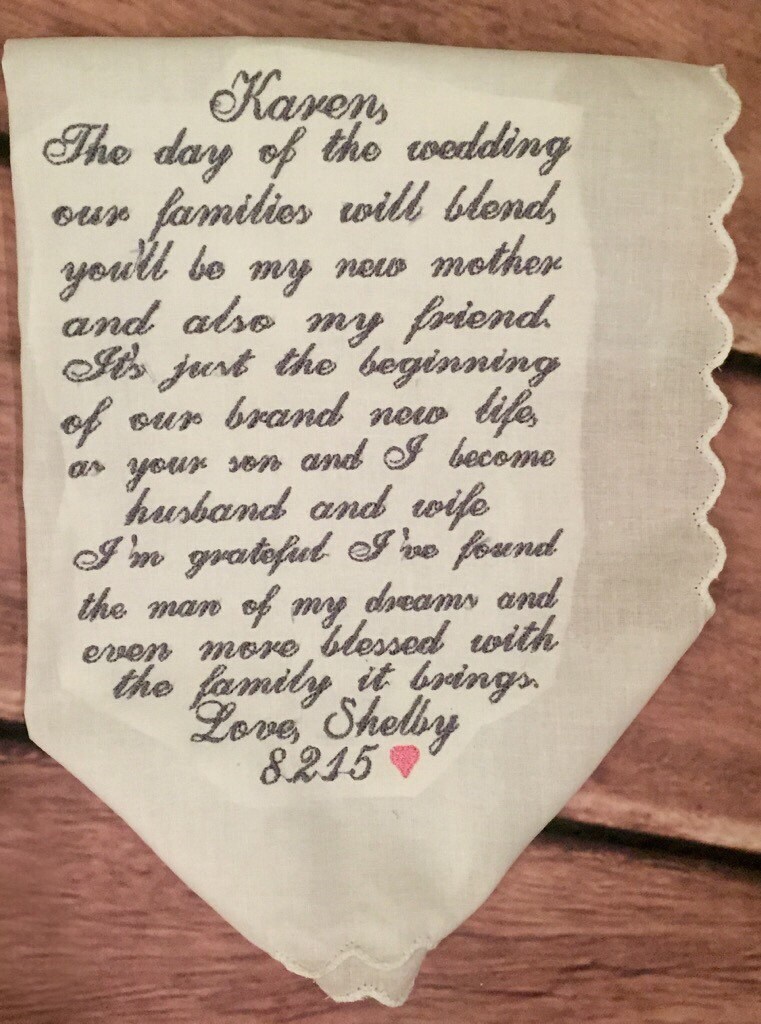 Karen,
The day of the wedding
our families will blend,
you'll be my new mother
and also my friend.
It's just the beginning
of our brand new life,
as your son and I become
husband and wife
I'm grateful I've found
the man of my dreams and
even more blessed with
the family it brings.
Love, Shelby
8.2.15